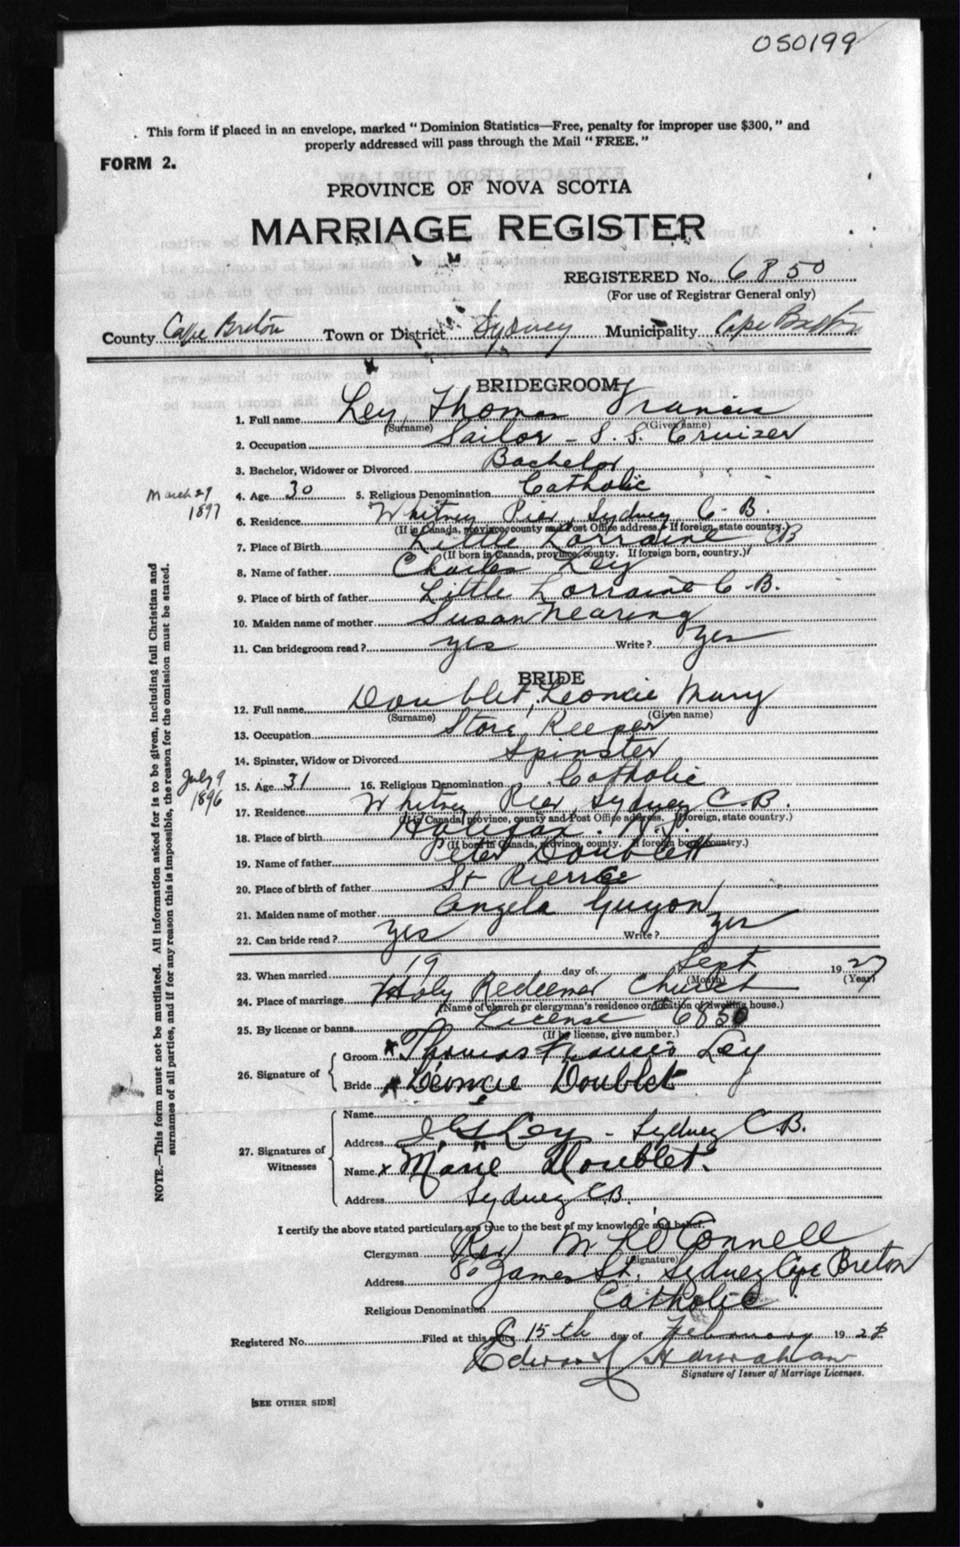 050199
This form if placed in an envelope, marked "Dominion Statistics—Free, penalty for improper use $300," and
properly addressed will pass through the Mail "FREE."
FORM 2.
PROVINCE OF NOVA SCOTIA
MARRIAGE REGISTER
REGISTERED No. 6850
(For use of Registrar General only)
County Cape Breton Town or District Sydney Municipality Cape Breton
BRIDEGROOM
1. Full name Ley, Thomas Francis
(Surname) (Given name)
2. Occupation Sailor - S.S. Cruizer
3. Bachelor, Widower or Divorced Bachelor
March 29
1897
4. Age 30 5. Religious Denomination Catholic
6. Residence Whitney Pier, Sydney C.B.
(If in Canada, province, county and Post Office address. If foreign, state country.)
7. Place of Birth Little Lorraine, CB
(If born in Canada, province, county. If foreign born, country.)
8. Name of father Charles Ley
9. Place of birth of father Little Lorraine C.B.
10. Maiden name of mother Susan Nearing
11. Can bridegroom read? yes Write? yes
BRIDE
12. Full name Doublet, Leoncie Mary
(Surname) (Given name)
13. Occupation Store Keeper
14. Spinster, Widow or Divorced Spinster
July 9
1896
15. Age 31 16. Religious Denomination Catholic
17. Residence Whitney Pier, Sydney C.B.
(If in Canada, province, county and Post Office address. If foreign, state country.)
18. Place of birth Halifax. N.S.
(If born in Canada, province, county. If foreign born, country.)
19. Name of father Peter Doublett
20. Place of birth of father St Pierre
21. Maiden name of mother Angela Guyon
22. Can bride read? yes Write? yes
23. When married 19 day of Sept 1927
(Month) (Year)
24. Place of marriage Holy Redeemer Church
(Name of church or clergyman's residence or location of dwelling house.)
25. By license or banns License 6850
(If by license, give number.)
26. Signature of
Groom Thomas Francis Ley
Bride Léoncie Doublet
27. Signatures of Witnesses
Name
Address Ley - Sydney C.B.
Name x Marie Doublet.
Address Sydney CB.
I certify the above stated particulars are true to the best of my knowledge and belief.
Clergyman Rev M O'Connell
(Signature)
Address 80 James St. Sydney Cape Breton
Religious Denomination Catholic
Registered No. Filed at this office 15th day of February 192
Edward Hanrahan
Signature of Issuer of Marriage Licenses.
[SEE OTHER SIDE]
NOTE.—This form must not be mutilated. All information asked for is to be given, including full Christian and
surnames of all parties, and if for any reason this is impossible, the reason for the omission must be stated.